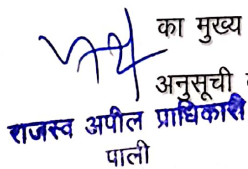 का मुख्य
अनुसूची
राजस्व अपील प्राधिकारी
पाली